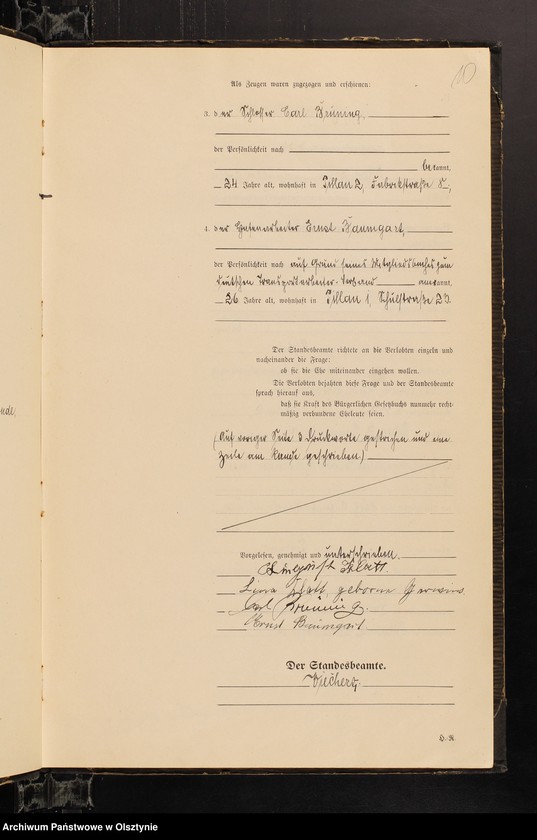 10
Als Zeugen waren zugezogen und erschienen:
3. der Schlosser Carl Brüning,
der Persönlichkeit nach
bekannt,
24 Jahre alt, wohnhaft in Pillau 2, Fabrikstraße
4. der Hafenarbeiter Ernst Baumgart,
der Persönlichkeit nach auf Grund seines Mitgliedsbuches zum
deutschen Transportarbeiter-Verband anerkannt,
26 Jahre alt, wohnhaft in Pillau 1, Schulstraße 23.
Der Standesbeamte richtete an die Verlobten einzeln und
nacheinander die Frage:
ob sie die Ehe miteinander eingehen wollen.
Die Verlobten bejahten diese Frage und der Standesbeamte
sprach hierauf aus,
daß sie kraft des Bürgerlichen Gesetzbuchs nunmehr recht-
mäßig verbundene Eheleute seien.
(Auf voriger Seite 3 Druckworte gestrichen und eine
Zeile am Rande geschrieben)
Vorgelesen, genehmigt und unterschrieben.
August Klatt.
Klatt geborne
Carl Brüning.
Ernst Baumgart
Der Standesbeamte.
H.-R.
Archiwum Państwowe w Olsztynie